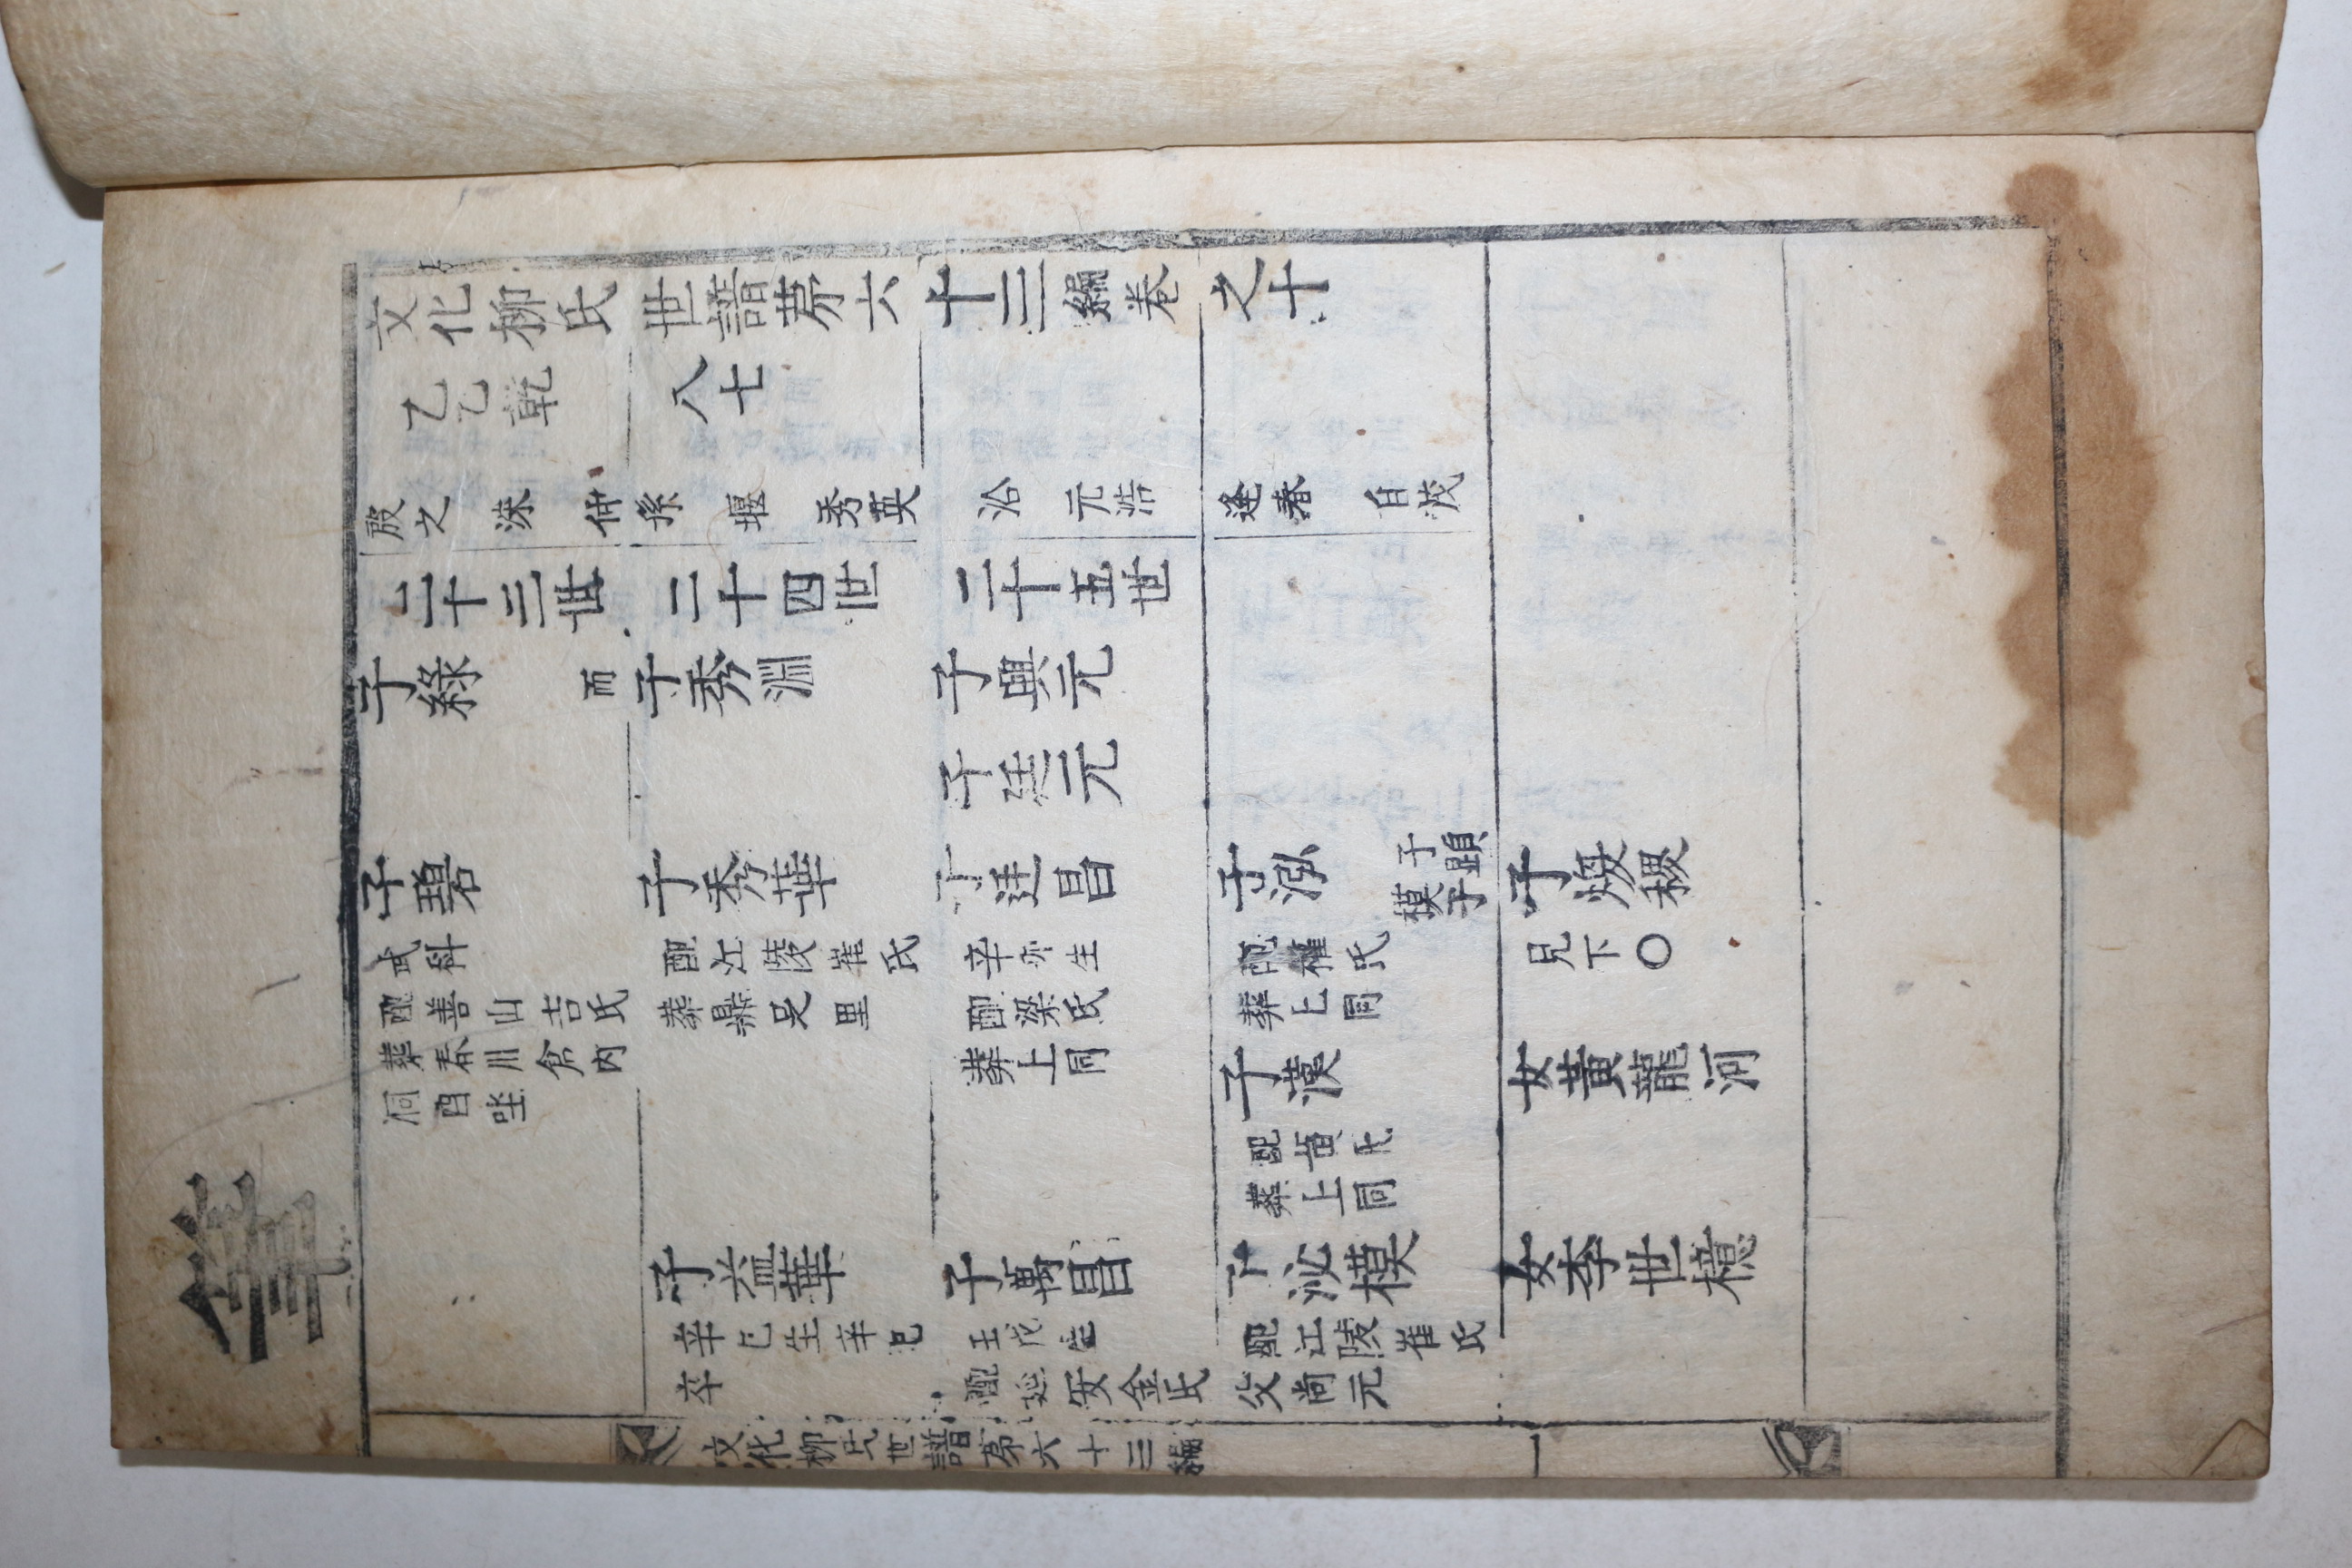 筆
文化柳氏世譜苐六十三編卷之十
乙乙乾 八七
殷之 洙 仲孫 堰 秀英 沿 元浩 逢春 自茂
二十三世 二十四世 二十五世
子綠 而 子秀淵 子興元
子廷元
子碧 子秀華 子廷昌 子泓 子顯
模子 子煥稷
武科 配江陵崔氏 辛亦生 配權氏 見下〇
配善山吉氏 葬鼎足里 配梁氏 葬上同
葬春川倉內 葬上同
洞酉坐
子漢 女黃龍河
配黃氏
葬上同
子益華 子萬昌 子泌模 女李世檍
辛巳生辛巳 壬戌生 配江陵崔氏
卒 配延安金氏 父尚元
文化柳氏世譜苐六十三編 一